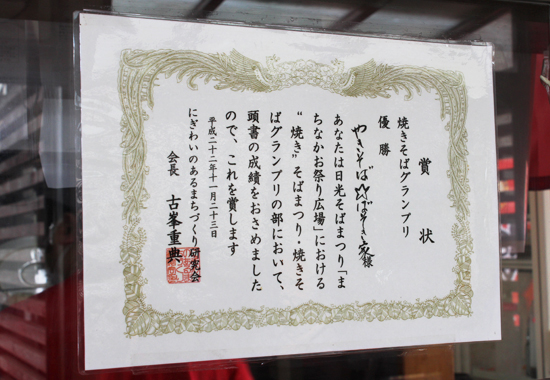 賞状
焼きそばグランプリ
優勝
やきそば 様
あなたは日光そばまつり「ま
ちなかお祭り広場」における
“焼き”そばまつり・焼きそ
ばグランプリの部において、
頭書の成績をおさめました
ので、これを賞します
平成二十二年十一月二十三日
にぎわいのあるまちづくり研究会
会長 古峯重典